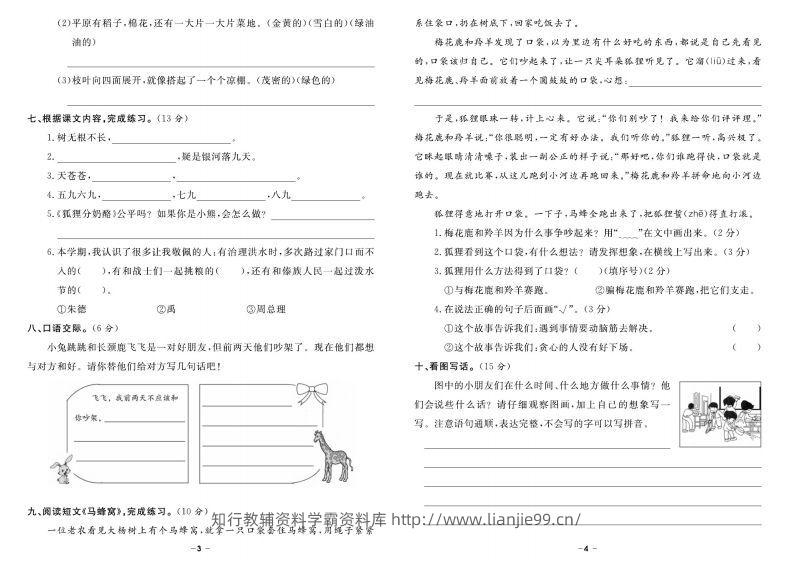 (2)平原有稻子,棉花,还有一大片一大片菜地。(金黄的)(雪白的)(绿油
油的)
(3)枝叶向四面展开,就像搭起了一个个凉棚。(茂密的)(绿色的)
七、根据课文内容,完成练习。(13 分)
1.树无根不长,____________________。
2.____________________,疑是银河落九天。
3.天苍苍,____________,____________________。
4.五九六九,____________,七九____________,八九____________。
5.《狐狸分奶酪》公平吗? 如果你是小熊,会怎么做? ____________________
6.本学期,我认识了很多让我敬佩的人:有治理洪水时,多次路过家门口而不
入的(    ),有和战士们一起挑粮的(    ),还有和傣族人民一起过泼水
节的(    )。
①朱德 ②禹 ③周总理
八、口语交际。(6 分)
小兔跳跳和长颈鹿飞飞是一对好朋友,但前两天他们吵架了。现在他们都想
与对方和好。请你替他们给对方写几句话吧!
飞飞,我前两天不应该和
你吵架。
九、阅读短文《马蜂窝》,完成练习。(10 分)
一位老农看见大杨树上有个马蜂窝,就拿一只口袋套住马蜂窝,用绳子紧紧
–3–
系住袋口,扔在树底下,回家吃饭去了。
梅花鹿和羚羊发现了口袋,以为里边有什么好吃的东西,都说是自己先看见
的,口袋该归自己。它们吵起来了,让一只尖耳朵狐狸听见了。它溜(liū)过来,看
见梅花鹿、羚羊面前放着一个圆鼓鼓的口袋,心想:____________________
于是,狐狸眼珠一转,计上心来。它说:“你们别吵了! 我来给你们评评理。”
梅花鹿和羚羊说:“你很聪明,一定有好办法。我们听你的。”狐狸一听,高兴极了。
它眯起眼睛清清嗓子,装出一副公正的样子说:“那好吧,你们谁跑得快,口袋就是
谁的。现在就比赛,从这儿跑到小河边再跑回来。”梅花鹿和羚羊拼命地向小河边
跑去。
狐狸得意地打开口袋。一下子,马蜂全跑出来了,把狐狸蜇(zhē)得直打滚。
1.梅花鹿和羚羊因为什么事争吵起来? 用“____”在文中画出来。(2 分)
2.狐狸看到这个口袋,有什么想法? 请发挥想象,在横线上写出来。(3 分)
3.狐狸用什么方法得到了口袋? (    )(填序号)(2 分)
①与梅花鹿和羚羊赛跑。 ②骗梅花鹿和羚羊赛跑,把它们支走。
4.在说法正确的句子后面画“√”。(3 分)
①这个故事告诉我们:遇到事情要动脑筋去解决。 (    )
②这个故事告诉我们:贪心的人没有好下场。 (    )
十、看图写话。(15 分)
图中的小朋友们在什么时间、什么地方做什么事情? 他
们会说些什么话? 请仔细观察图画,加上自己的想象写一
写。注意语句通顺,表达完整,不会写的字可以写拼音。
知行教辅资料学霸资料库 http://www.lianjie99.cn/
–4–